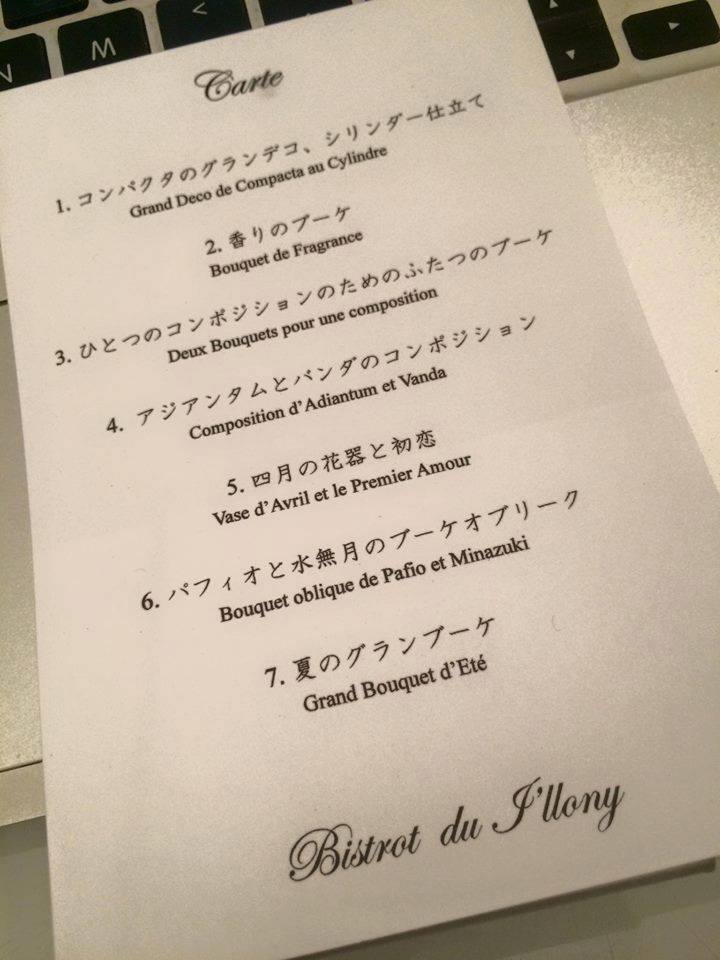 N W <
Carte
1. コンパクタのグランデコ、シリンダー仕立て
Grand Deco de Compacta au Cylindre
2. 香りのブーケ
Bouquet de Fragrance
3. ひとつのコンポジションのためのふたつのブーケ
Deux Bouquets pour une composition
4. アジアンタムとバンダのコンポジション
Composition d'Adiantum et Vanda
5. 四月の花器と初恋
Vase d'Avril et le Premier Amour
6. パフィオと水無月のブーケオブリーク
Bouquet oblique de Pafio et Minazuki
7. 夏のグランブーケ
Grand Bouquet d'Eté
Bistrot du I'llony